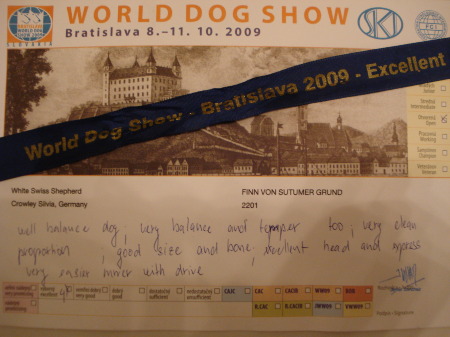 WORLD DOG SHOW
Bratislava 8.–11. 10. 2009
SLOVAKIA
SKJ
FCI
World Dog Show - Bratislava 2009 - Excellent
Otvorená
Open
Pracovná
Working
White Swiss Shepherd
Crowley Silvia, Germany
FINN VON SUTUMER GRUND
2201
well balance dog, very balance and temper too, very clean
proportion, good size and bone, excellent head and express
very easier mover with drive
výborný
excellent
veľmi dobrý
very good
dobrý
good
dostatočný
sufficient
CAJC
CAC
CACIB
WW09
BOB
R.CAC
R.CACIB
JWW09
VWW09